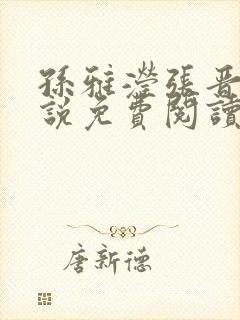 孫雅瀅張晋
說免費閱讀
唐新德